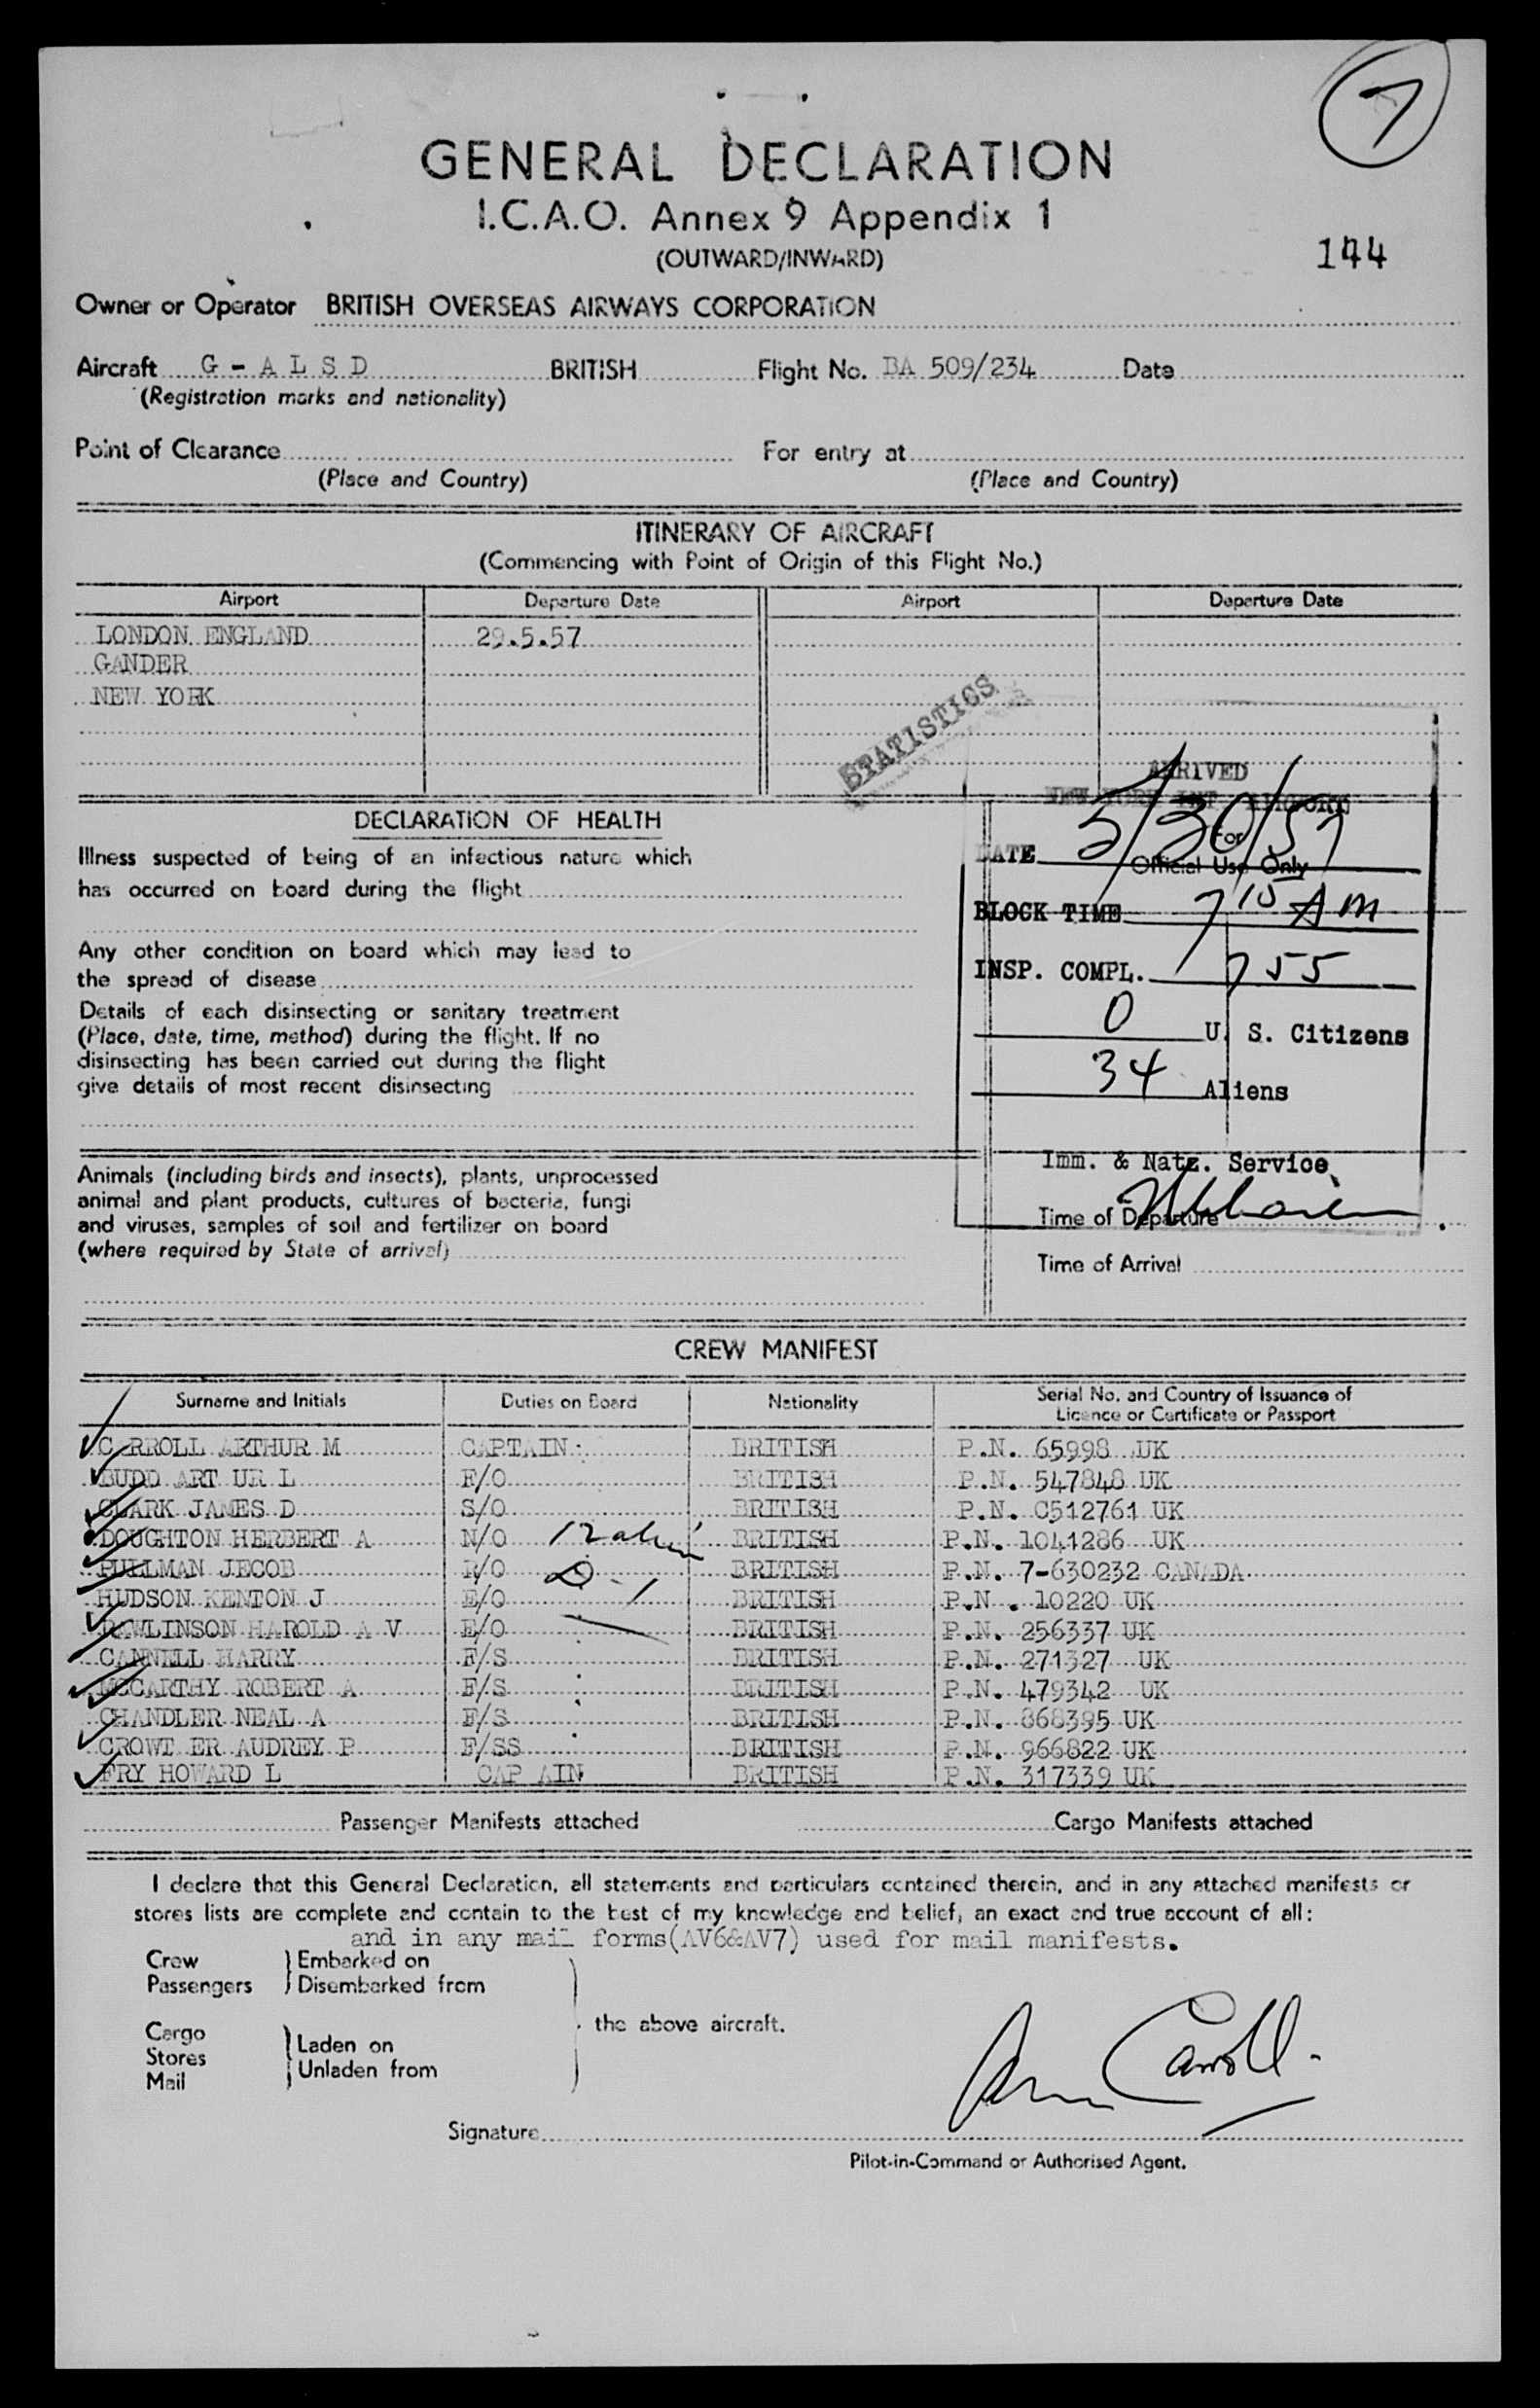 7
GENERAL DECLARATION
I.C.A.O. Annex 9 Appendix 1
(OUTWARD/INWARD)
144
Owner or Operator BRITISH OVERSEAS AIRWAYS CORPORATION
Aircraft G - A L S D BRITISH Flight No. BA 509/234 Date
(Registration marks and nationality)
Point of Clearance For entry at
(Place and Country) (Place and Country)
ITINERARY OF AIRCRAFT
(Commencing with Point of Origin of this Flight No.)
Airport Departure Date Airport Departure Date
LONDON ENGLAND 29.5.57
GANDER
NEW YORK
STATISTICS
ARRIVED
NEW YORK INT. AIRPORT
DECLARATION OF HEALTH
For
Official Use Only
DATE 5/30/57
Illness suspected of being of an infectious nature which
has occurred on board during the flight
BLOCK TIME 7 15 AM
Any other condition on board which may lead to
the spread of disease
INSP. COMPL. 755
Details of each disinsecting or sanitary treatment
(Place, date, time, method) during the flight. If no
disinsecting has been carried out during the flight
give details of most recent disinsecting
0 U. S. Citizens
34 Aliens
Imm. & Natz. Service
Animals (including birds and insects), plants, unprocessed
animal and plant products, cultures of bacteria, fungi
and viruses, samples of soil and fertilizer on board
(where required by State of arrival)
Time of Departure
Time of Arrival
CREW MANIFEST
Surname and Initials Duties on Board Nationality Serial No. and Country of Issuance of
Licence or Certificate or Passport
C RROLL ARTHUR M CAPTAIN BRITISH P.N. 65998 UK
BUDD ART UR L F/O BRITISH P.N. 547848 UK
CLARK JAMES D S/O BRITISH P.N. C512761 UK
DOUGHTON HERBERT A N/O BRITISH P.N. 1041286 UK
PULLMAN JECOB R/O BRITISH P.N. 7-630232 CANADA
HUDSON KENTON J E/O BRITISH P.N. 10220 UK
RAWLINSON HAROLD A V E/O BRITISH P.N. 256337 UK
CANNELL HARRY F/S BRITISH P.N. 271327 UK
MCCARTHY ROBERT A F/S BRITISH P.N. 479342 UK
CHANDLER NEAL A F/S BRITISH P.N. 868395 UK
CROWT ER AUDREY P F/SS BRITISH P.N. 966822 UK
FRY HOWARD L CAP AIN BRITISH P.N. 317339 UK
D-1
Passenger Manifests attached Cargo Manifests attached
I declare that this General Declaration, all statements and particulars contained therein, and in any attached manifests or
stores lists are complete and contain to the best of my knowledge and belief, an exact and true account of all:
and in any mail forms(AV6&AV7) used for mail manifests.
Crew Embarked on
Passengers Disembarked from
the above aircraft.
Cargo
Stores
Mail
Laden on
Unladen from
Carroll
Signature
Pilot-in-Command or Authorised Agent.